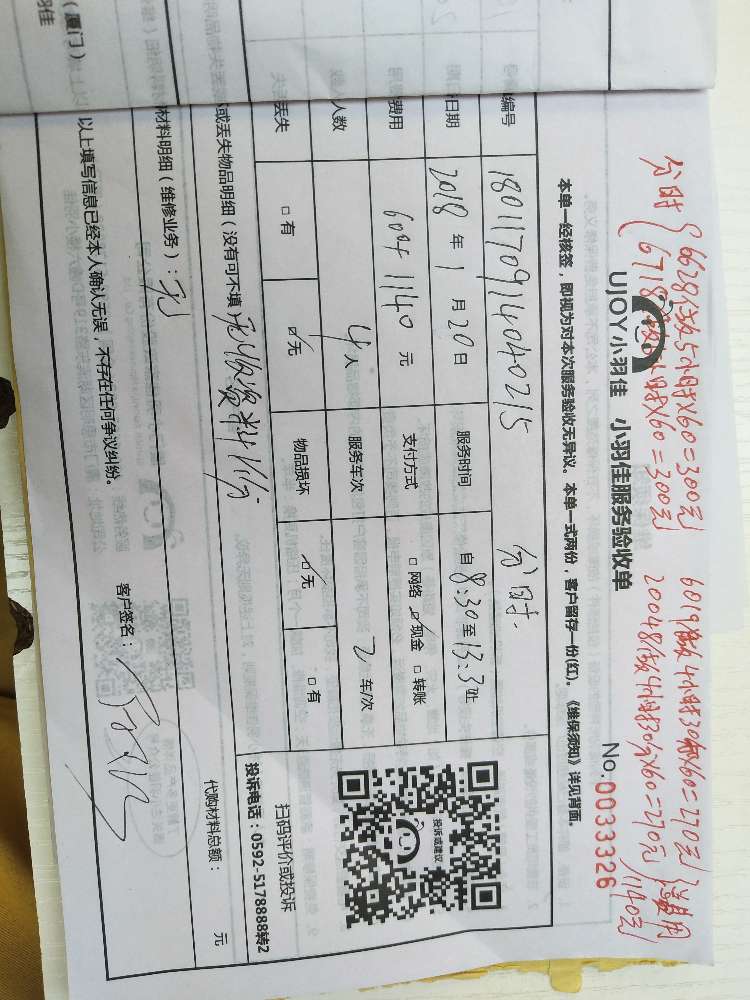 分时 { 6628片数5小时×60=300元
6718片数5小时×60=300元
6019片数4小时30分×60=270元
20048片数4小时30分×60=270元
费用
1140元
UJOY小羽佳 小羽佳服务验收单
No.0033326
本单一经核签，即视为对本次服务验收无异议。本单一式两份，客户留存一份(红)。《维保须知》详见背面。
编号 1801170914040215 分时
日期 2018年1月20日 服务时间 自8:30至13:30止
费用 1140元 支付方式 □网络 ☑现金 □转账
人数 4人 服务车次 2车/次
丢失 □有 ☑无 物品损坏 ☑无 □有
或丢失物品明细（没有可不填
材料明细（维修业务）：无
代购材料总额： 元
扫码评价或投诉
投诉电话：0592-5178888转2
投诉或建议
以上填写信息已经本人确认无误，不存在任何争议纠纷。
客户签名：
（厦门）
羽佳